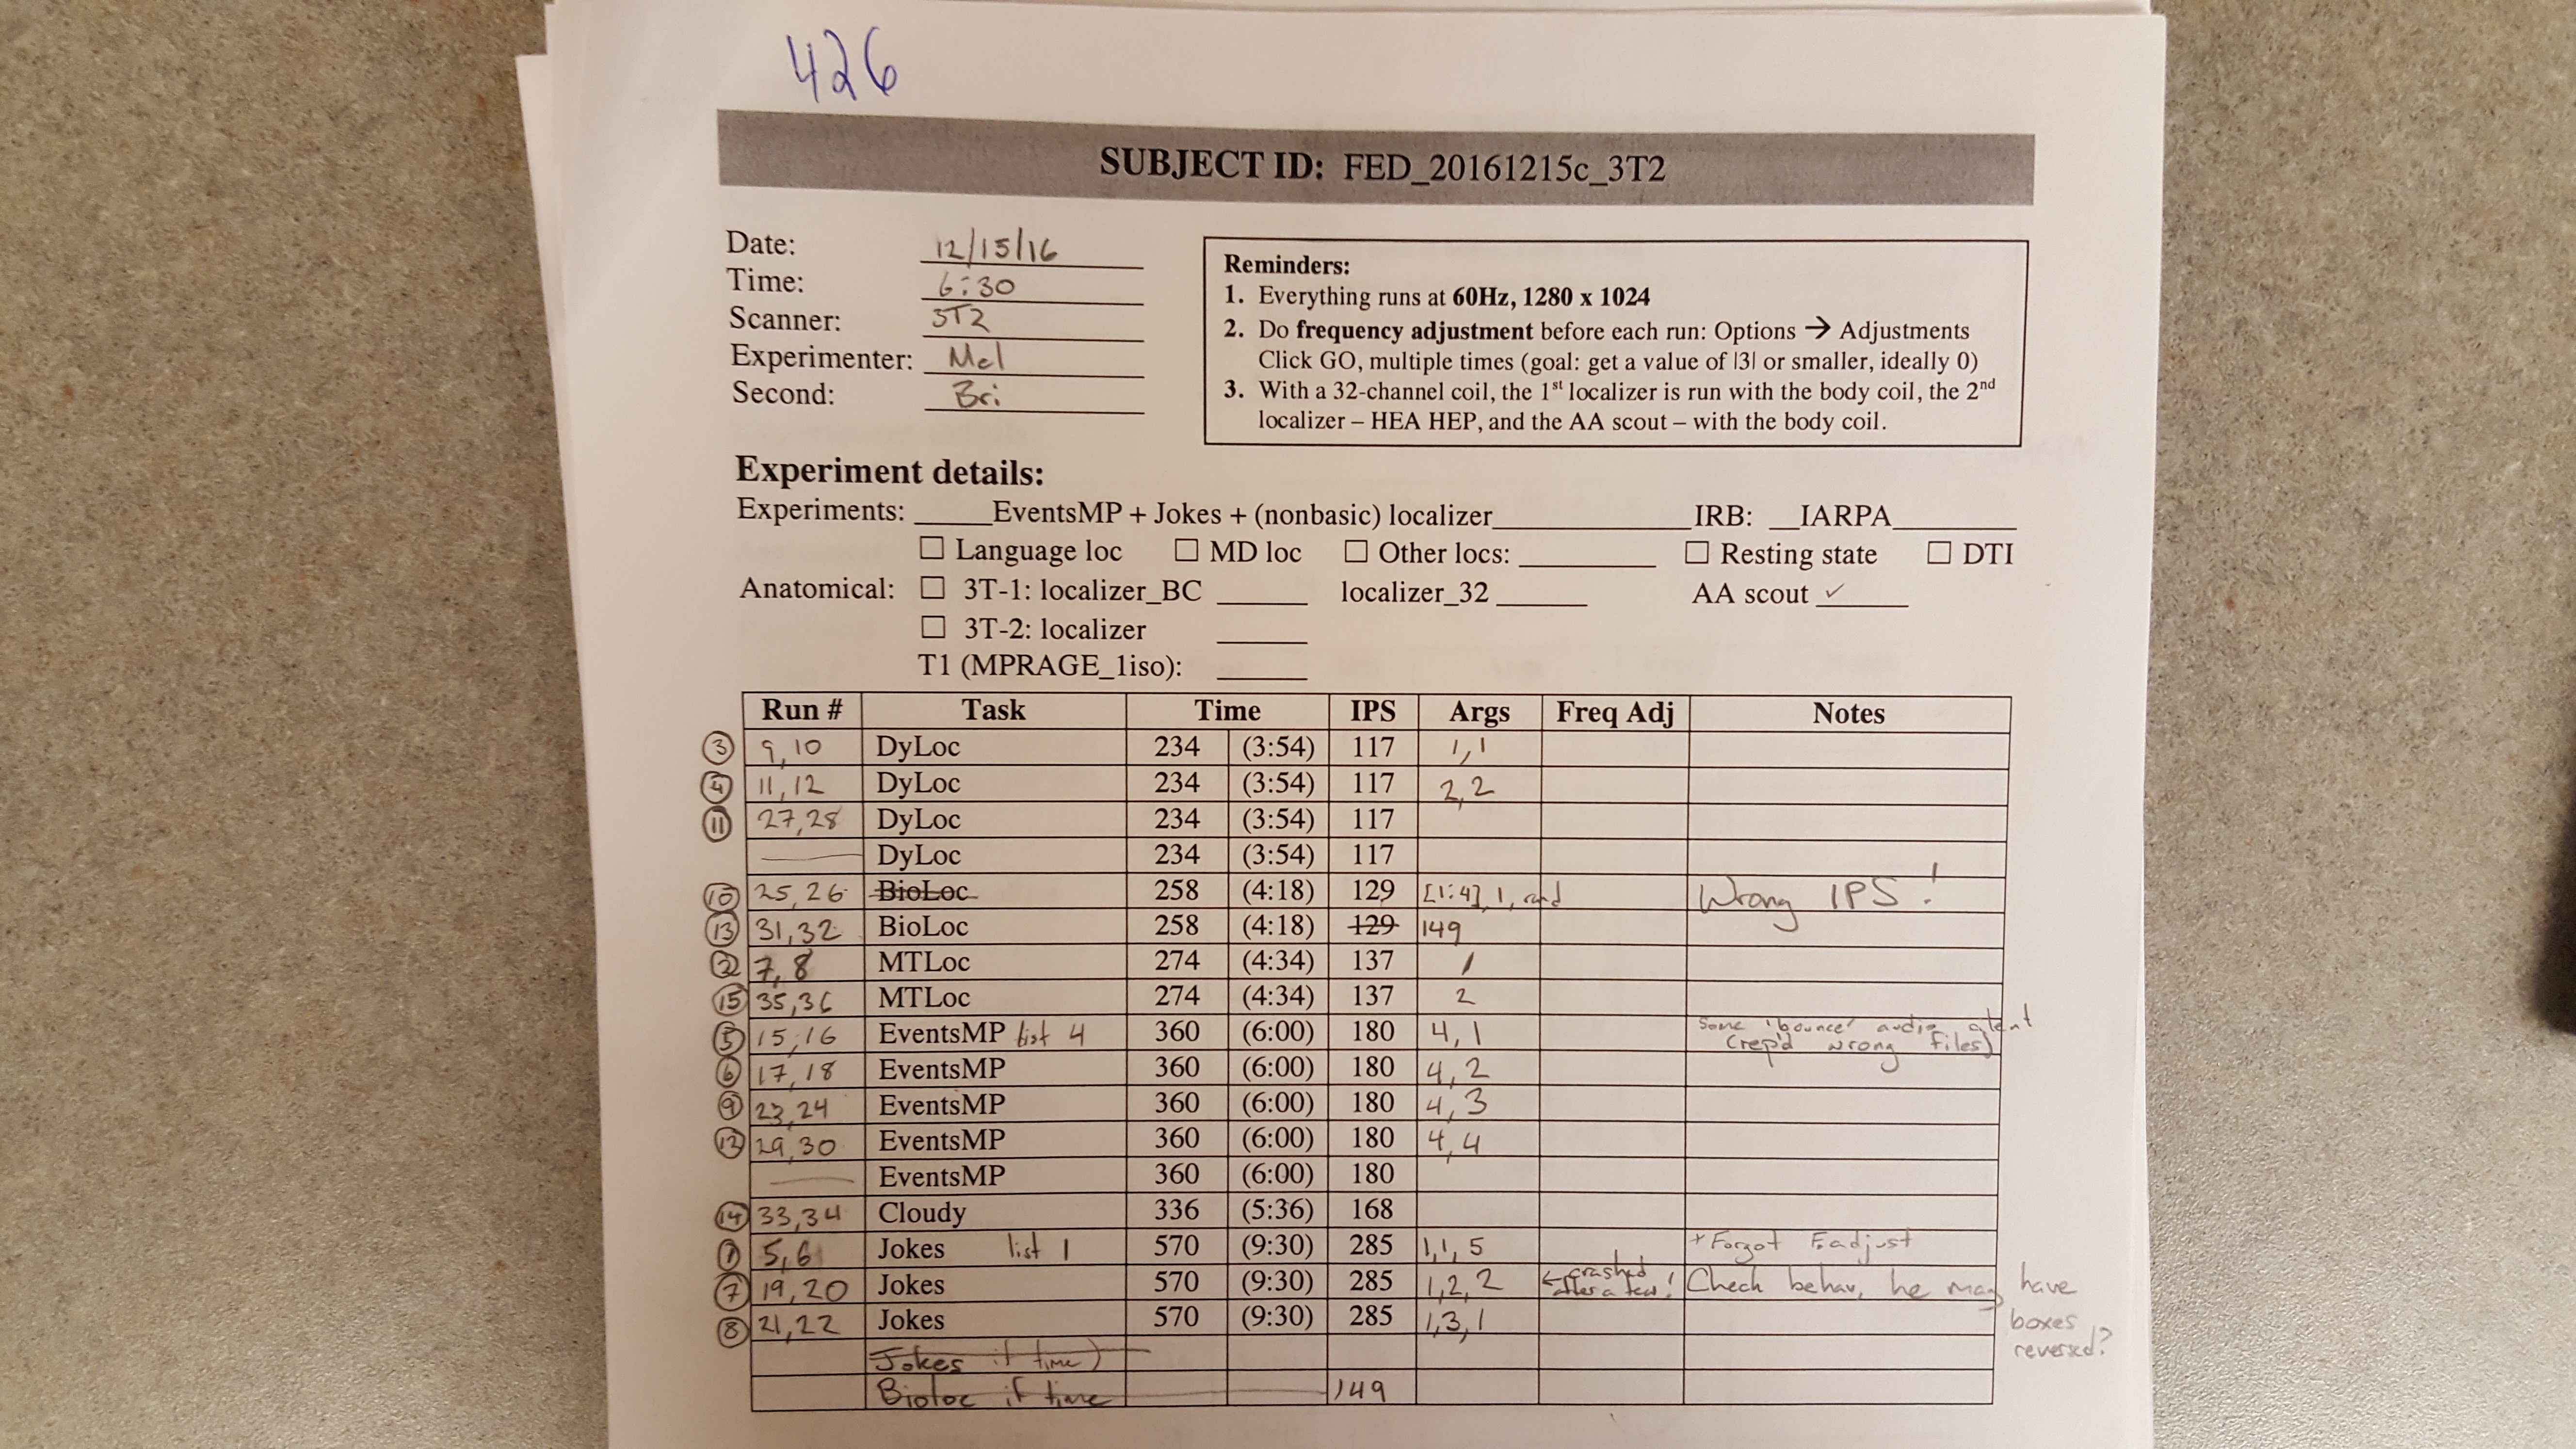 426
SUBJECT ID: FED_20161215c_3T2
Date: 12/15/16
Time: 6:30
Scanner: 3T2
Experimenter: Mel
Second: Bri
Reminders:
1. Everything runs at 60Hz, 1280 x 1024
2. Do frequency adjustment before each run: Options → Adjustments
Click GO, multiple times (goal: get a value of |3| or smaller, ideally 0)
3. With a 32-channel coil, the 1st localizer is run with the body coil, the 2nd
localizer – HEA HEP, and the AA scout – with the body coil.
Experiment details:
Experiments: _____EventsMP + Jokes + (nonbasic) localizer_____________IRB: __IARPA________
☐ Language loc ☐ MD loc ☐ Other locs: _________ ☐ Resting state ☐ DTI
Anatomical: ☐ 3T-1: localizer_BC ______ localizer_32 ______ AA scout ✓
☐ 3T-2: localizer ______
T1 (MPRAGE_1iso): ______
Run # Task Time IPS Args Freq Adj Notes
③ 9, 10 DyLoc 234 (3:54) 117 1,1
④ 11, 12 DyLoc 234 (3:54) 117 2,2
⑪ 27,28 DyLoc 234 (3:54) 117
— DyLoc 234 (3:54) 117
⑩ 25,26 BioLoc 258 (4:18) 129 [1:4], 1, rand Wrong IPS!
⑬ 31,32 BioLoc 258 (4:18) 129 149
② 7,8 MTLoc 274 (4:34) 137 1
⑮ 35,36 MTLoc 274 (4:34) 137 2
⑤ 15,16 EventsMP list 4 360 (6:00) 180 4,1 Some 'bounce' audio silent
(rep'd wrong files)
⑥ 17,18 EventsMP 360 (6:00) 180 4,2
⑨ 23,24 EventsMP 360 (6:00) 180 4,3
⑫ 29,30 EventsMP 360 (6:00) 180 4,4
— EventsMP 360 (6:00) 180
⑭ 33,34 Cloudy 336 (5:36) 168
① 5,6 Jokes list 1 570 (9:30) 285 1,1,5 *Forgot F.adjust
⑦ 19,20 Jokes 570 (9:30) 285 1,2,2 ← crashed after a few! Check behav, he may have
boxes
reversed?
⑧ 21,22 Jokes 570 (9:30) 285 1,3,1
Jokes if time)
Bioloc if time 149